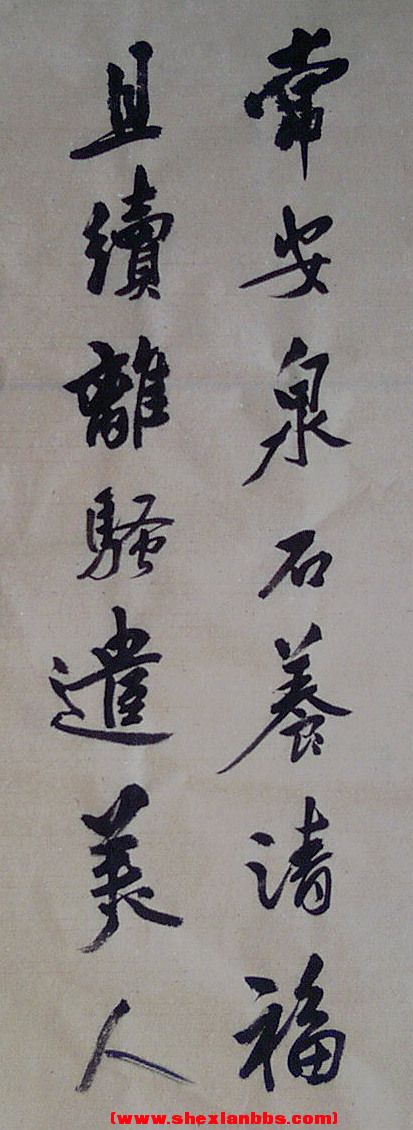 常安泉石養清福
且續離騷遣美人
(www.shexianbbs.com)